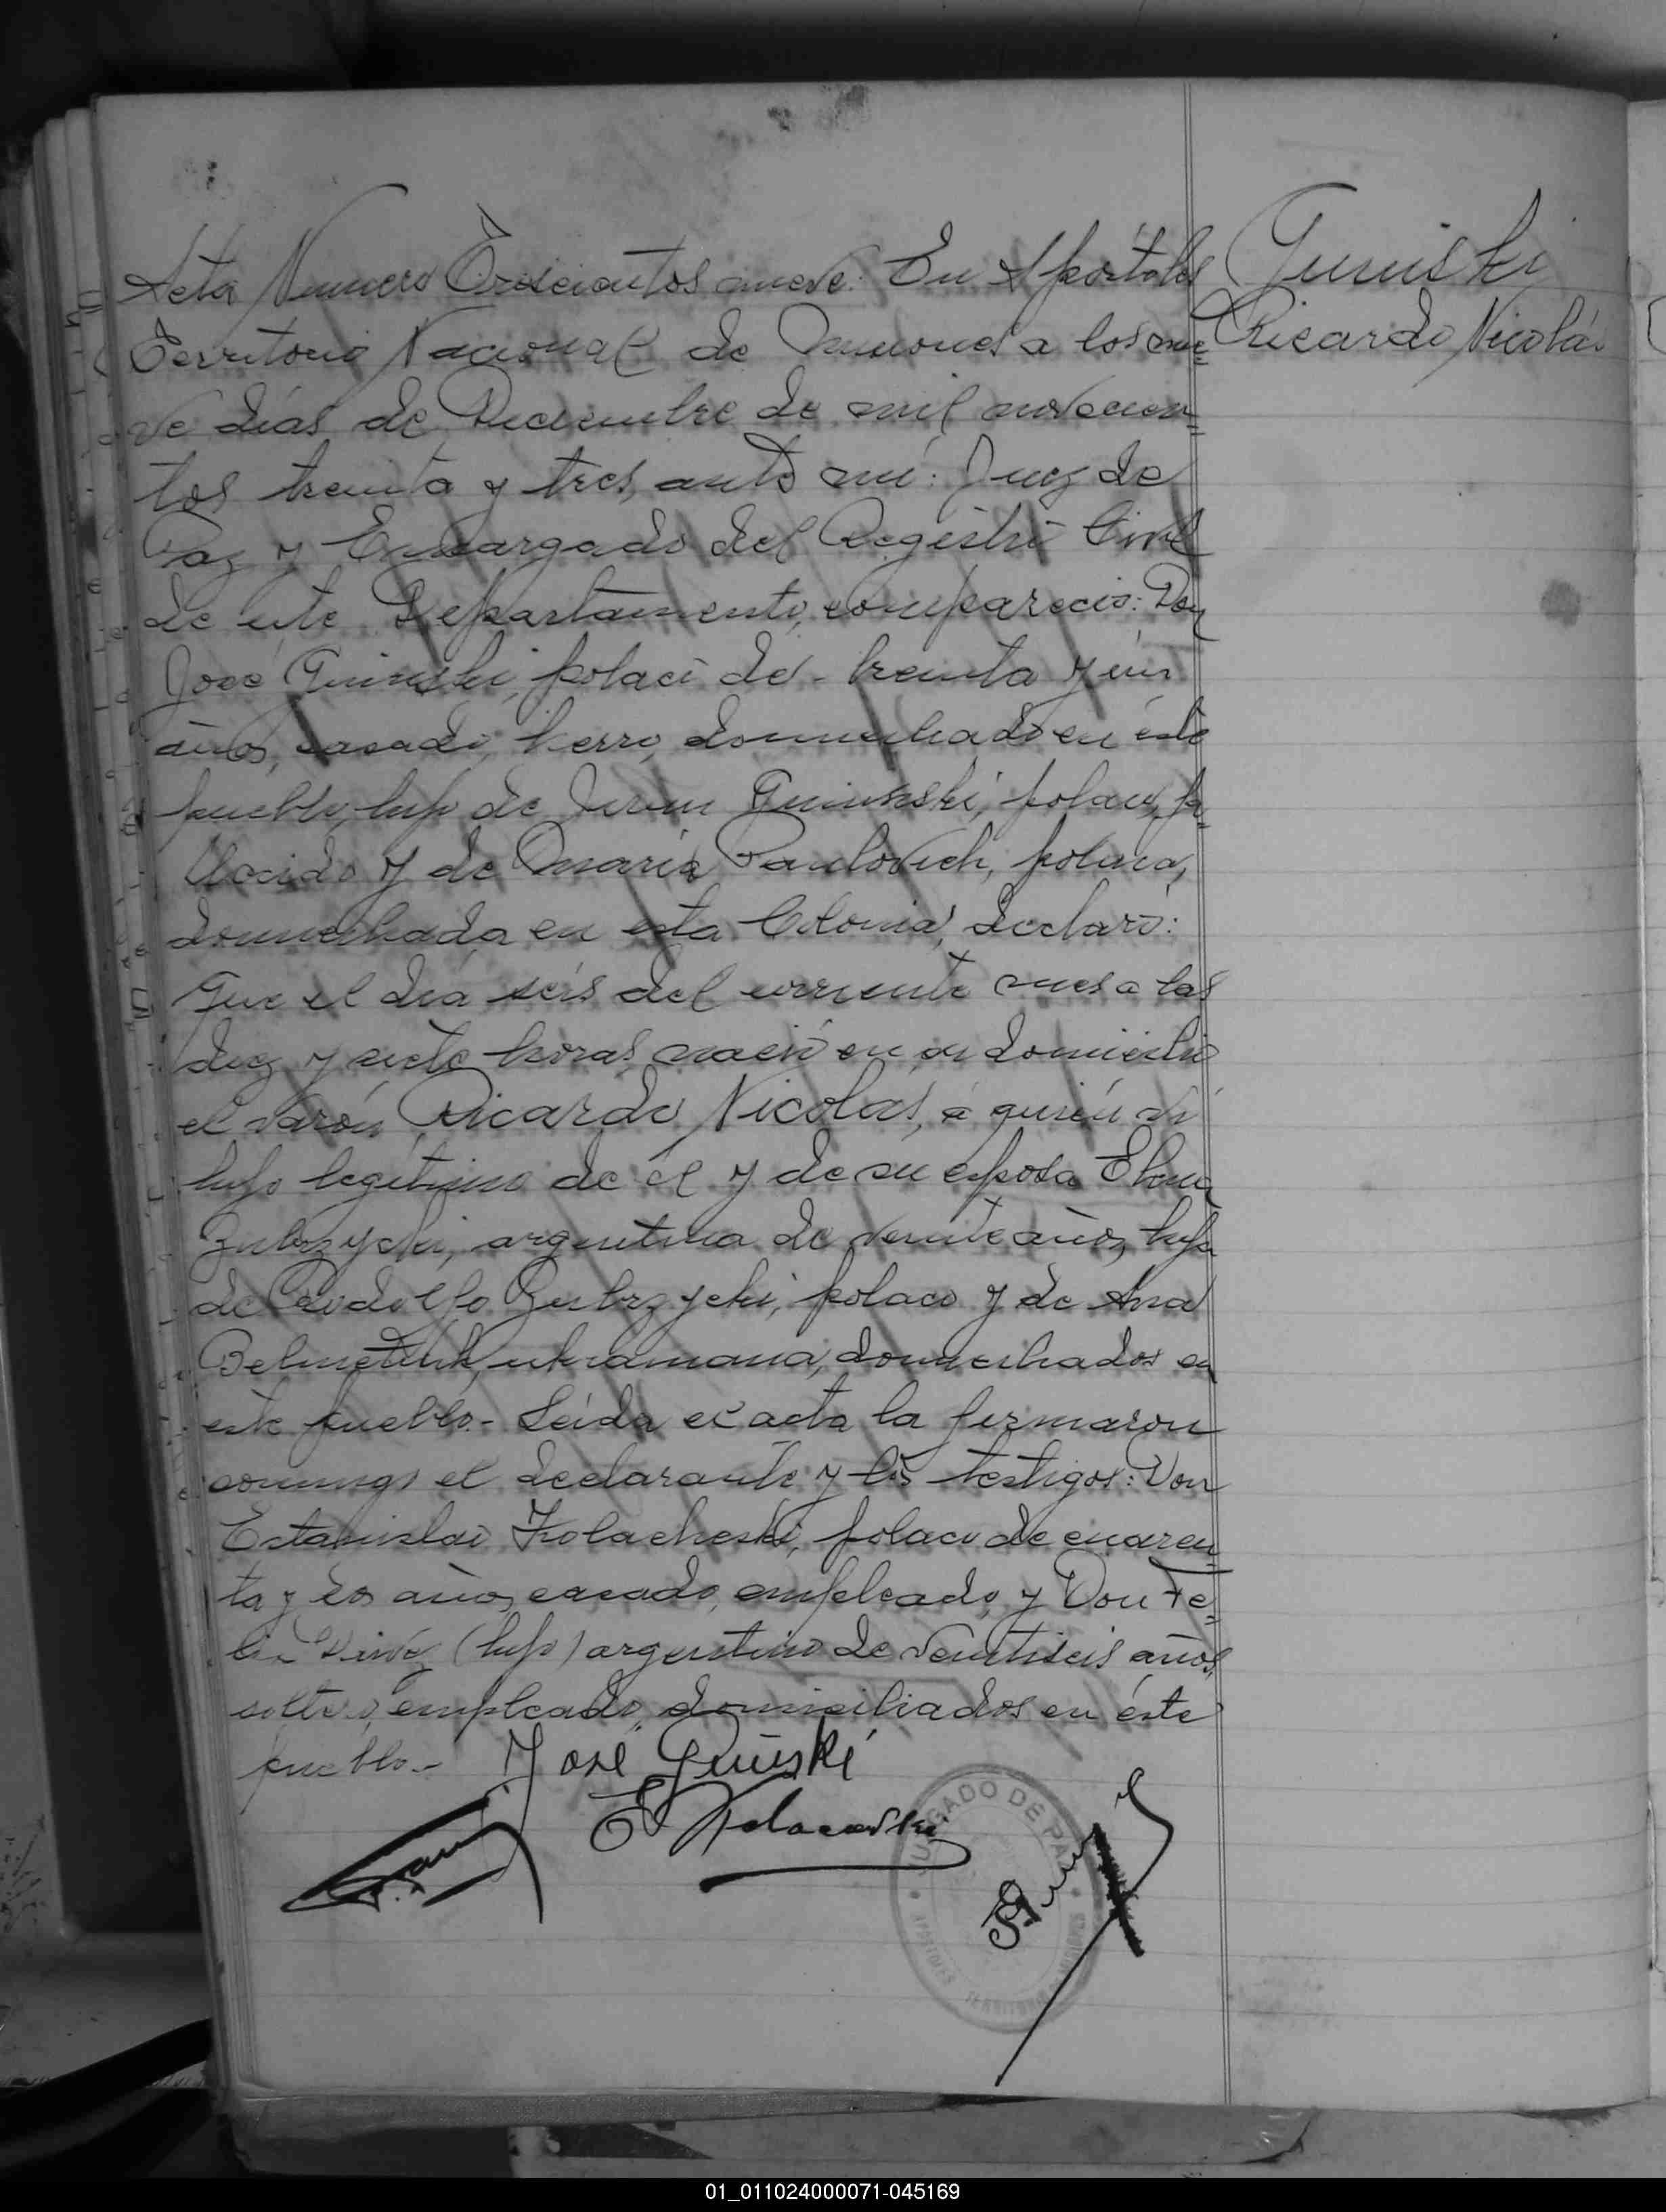 Acta Numero Trescientos nueve: En Apóstoles
Territorio Nacional de Misiones a los nue=
ve días de Diciembre de mil novecien=
tos treinta y tres, ante mi: Juez de
Paz y Encargado del Registro Civil
de este Departamento, compareció: Don
José polaco de - treinta y un
años, casado, domiciliado en éste
pueblo, hijo de polaco, fa=
llecido y de María Paulovich, polaca,
domiciliada en esta Colonia, declaró:
Que el día seis del corriente mes a las
diez y siete horas, nació en su domicilio
el varón Ricardo Nicolás, a quién vi
hijo legítimo de él y de su esposa Elena
Zubrzycki, argentina de veinte años, hija
de Rodolfo Zubrzycki, polaco y de Ana
ukraniana, domiciliados en
este pueblo.- Leída el acta la firmaron
conmigo el declarante y los testigos: Don
Estanislao Kolacheski, polaco de cuaren=
ta y dos años, casado, empleado, y Don Fe=
(hijo) argentino de veintiseis años,
soltero, empleado, domiciliados en éste
pueblo.- José
E
JUZGADO DE PAZ
APOSTOLES
Ricardo Nicolás
01_011024000071-045169